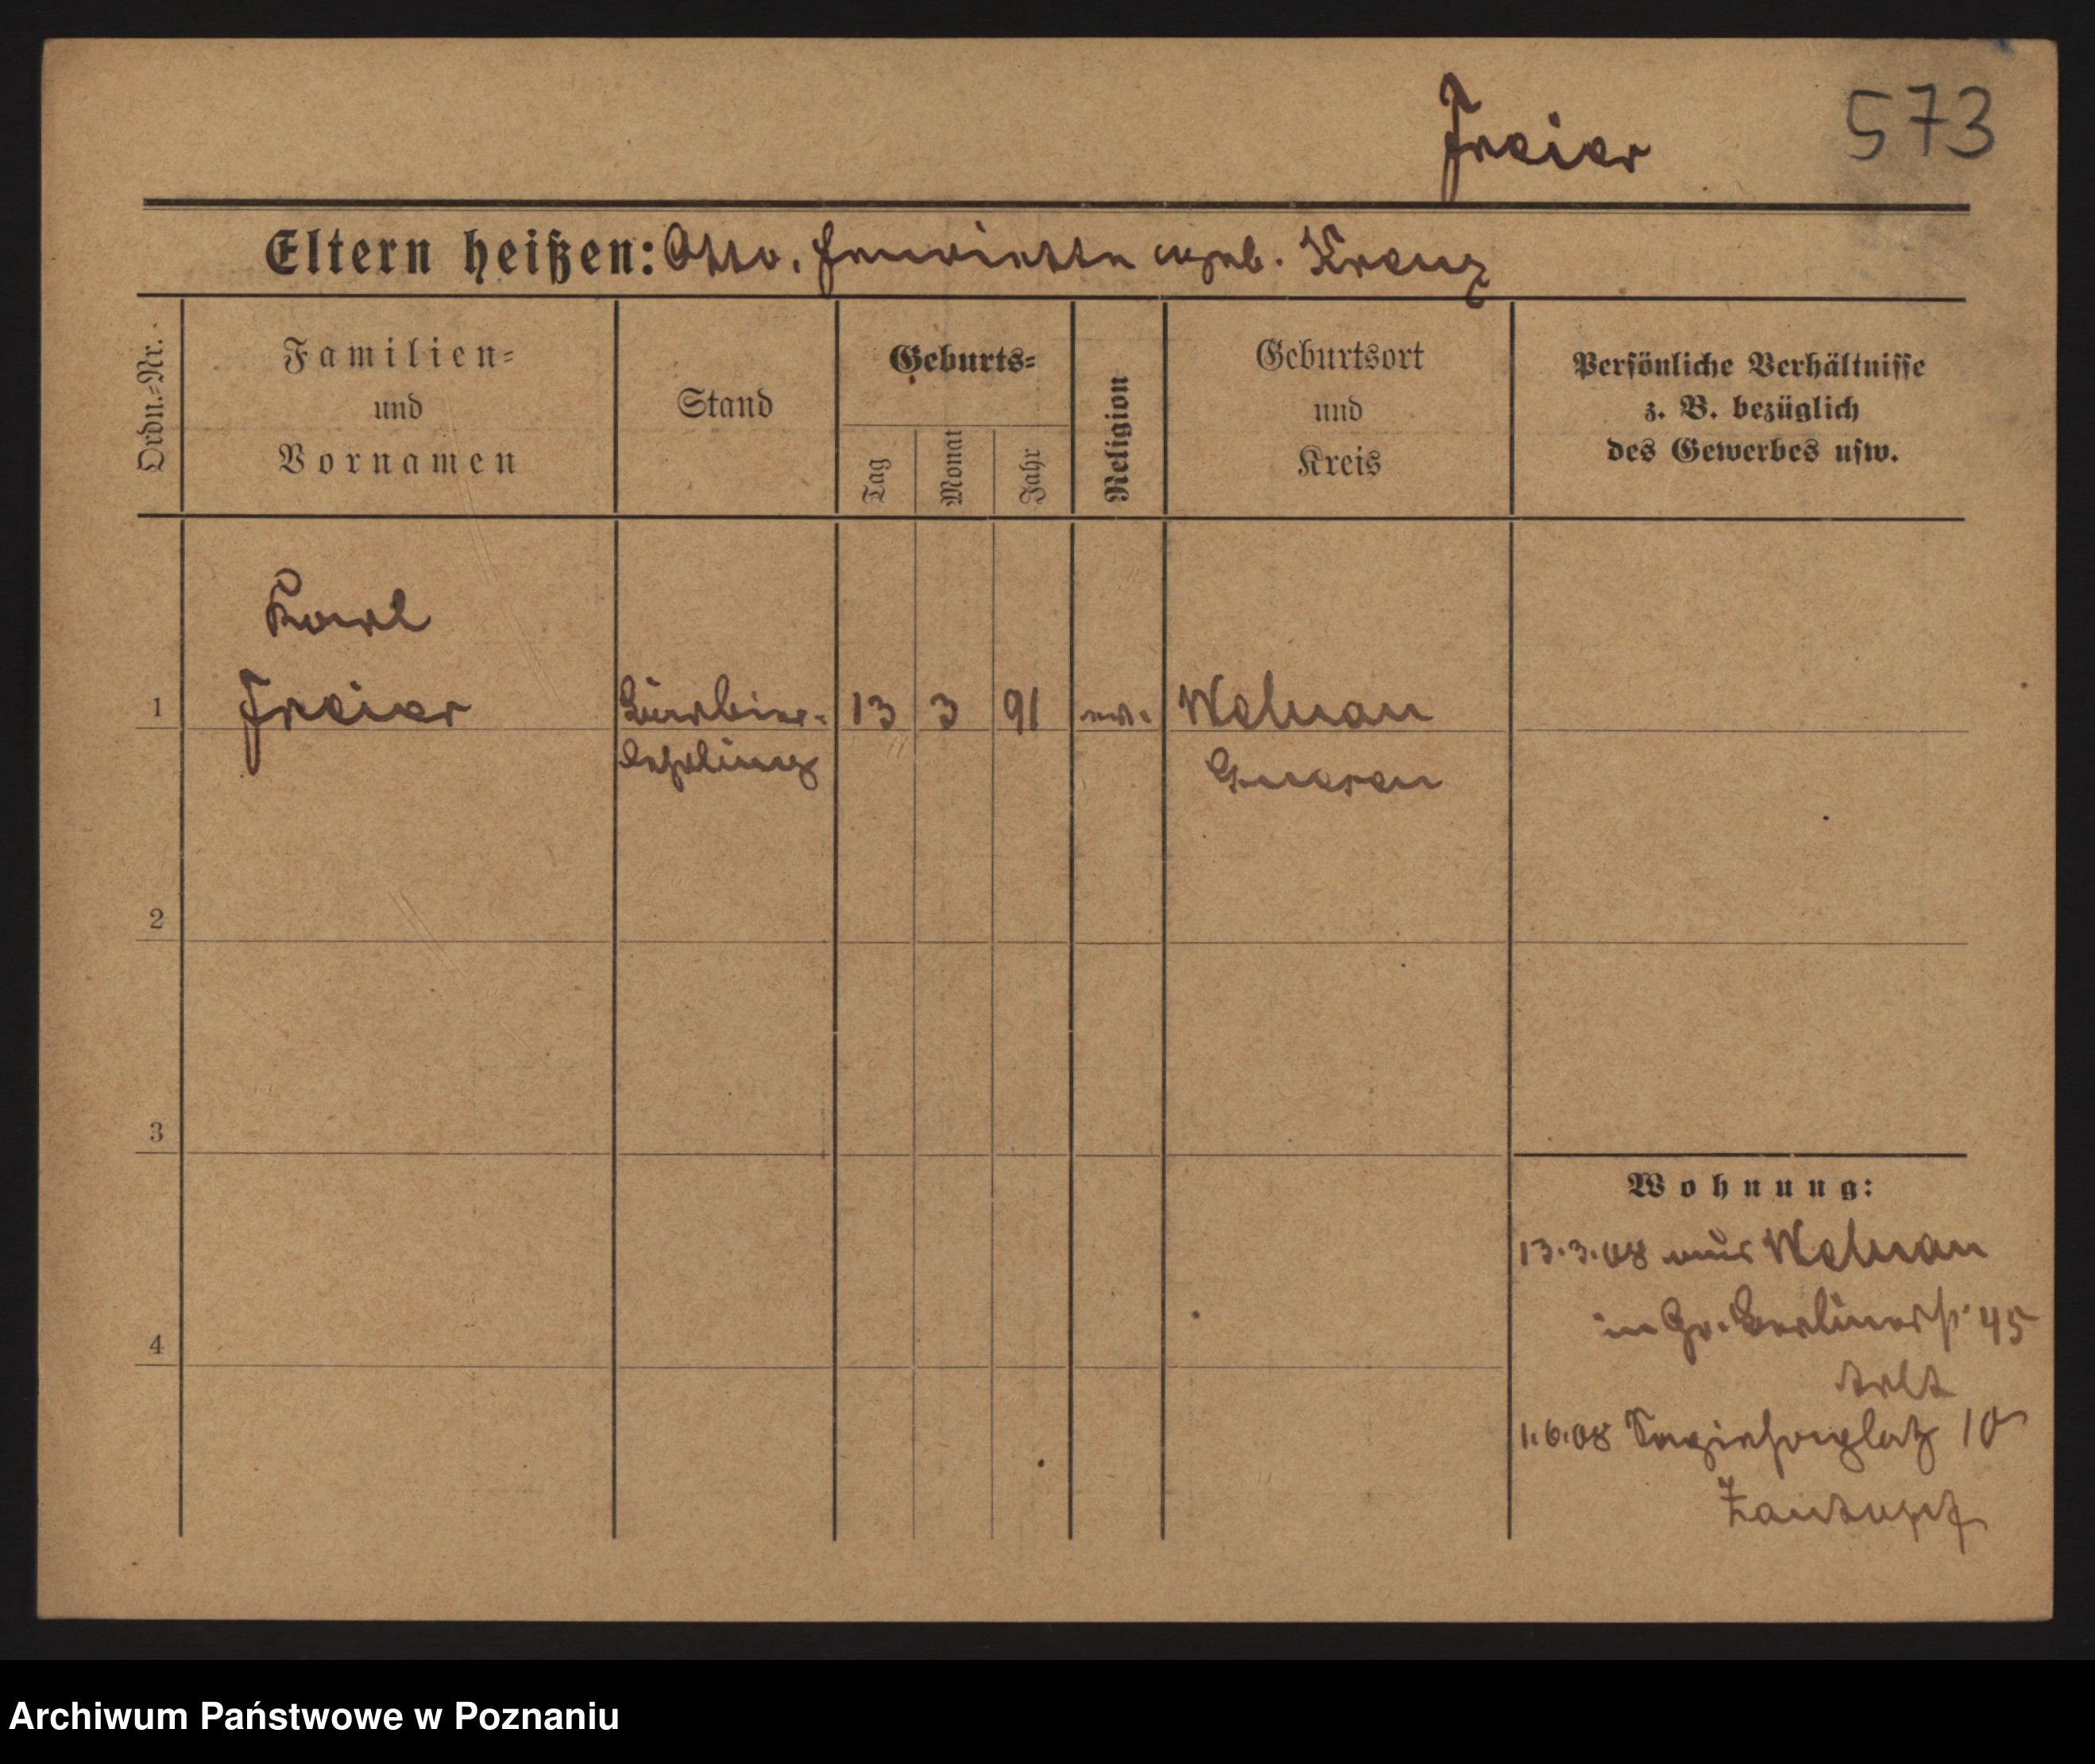 Freier 573
Eltern heißen: Otto, Henriette geb. Krenz
Ordn.-Nr.
Familien-
und
Vornamen
Stand
Geburts-
Tag
Monat
Jahr
Religion
Geburtsort
und
Kreis
Persönliche Verhältnisse
z. B. bezüglich
des Gewerbes usw.
Karl
1 Freier Barbier- 13 3 91 ev. Welnau
lehrling Gnesen
2
3
Wohnung:
13.3.08 aus Welnau
in Gr. Berlinerstr 45
4
1.6.08 Sapiehaplatz 10
Archiwum Państwowe w Poznaniu